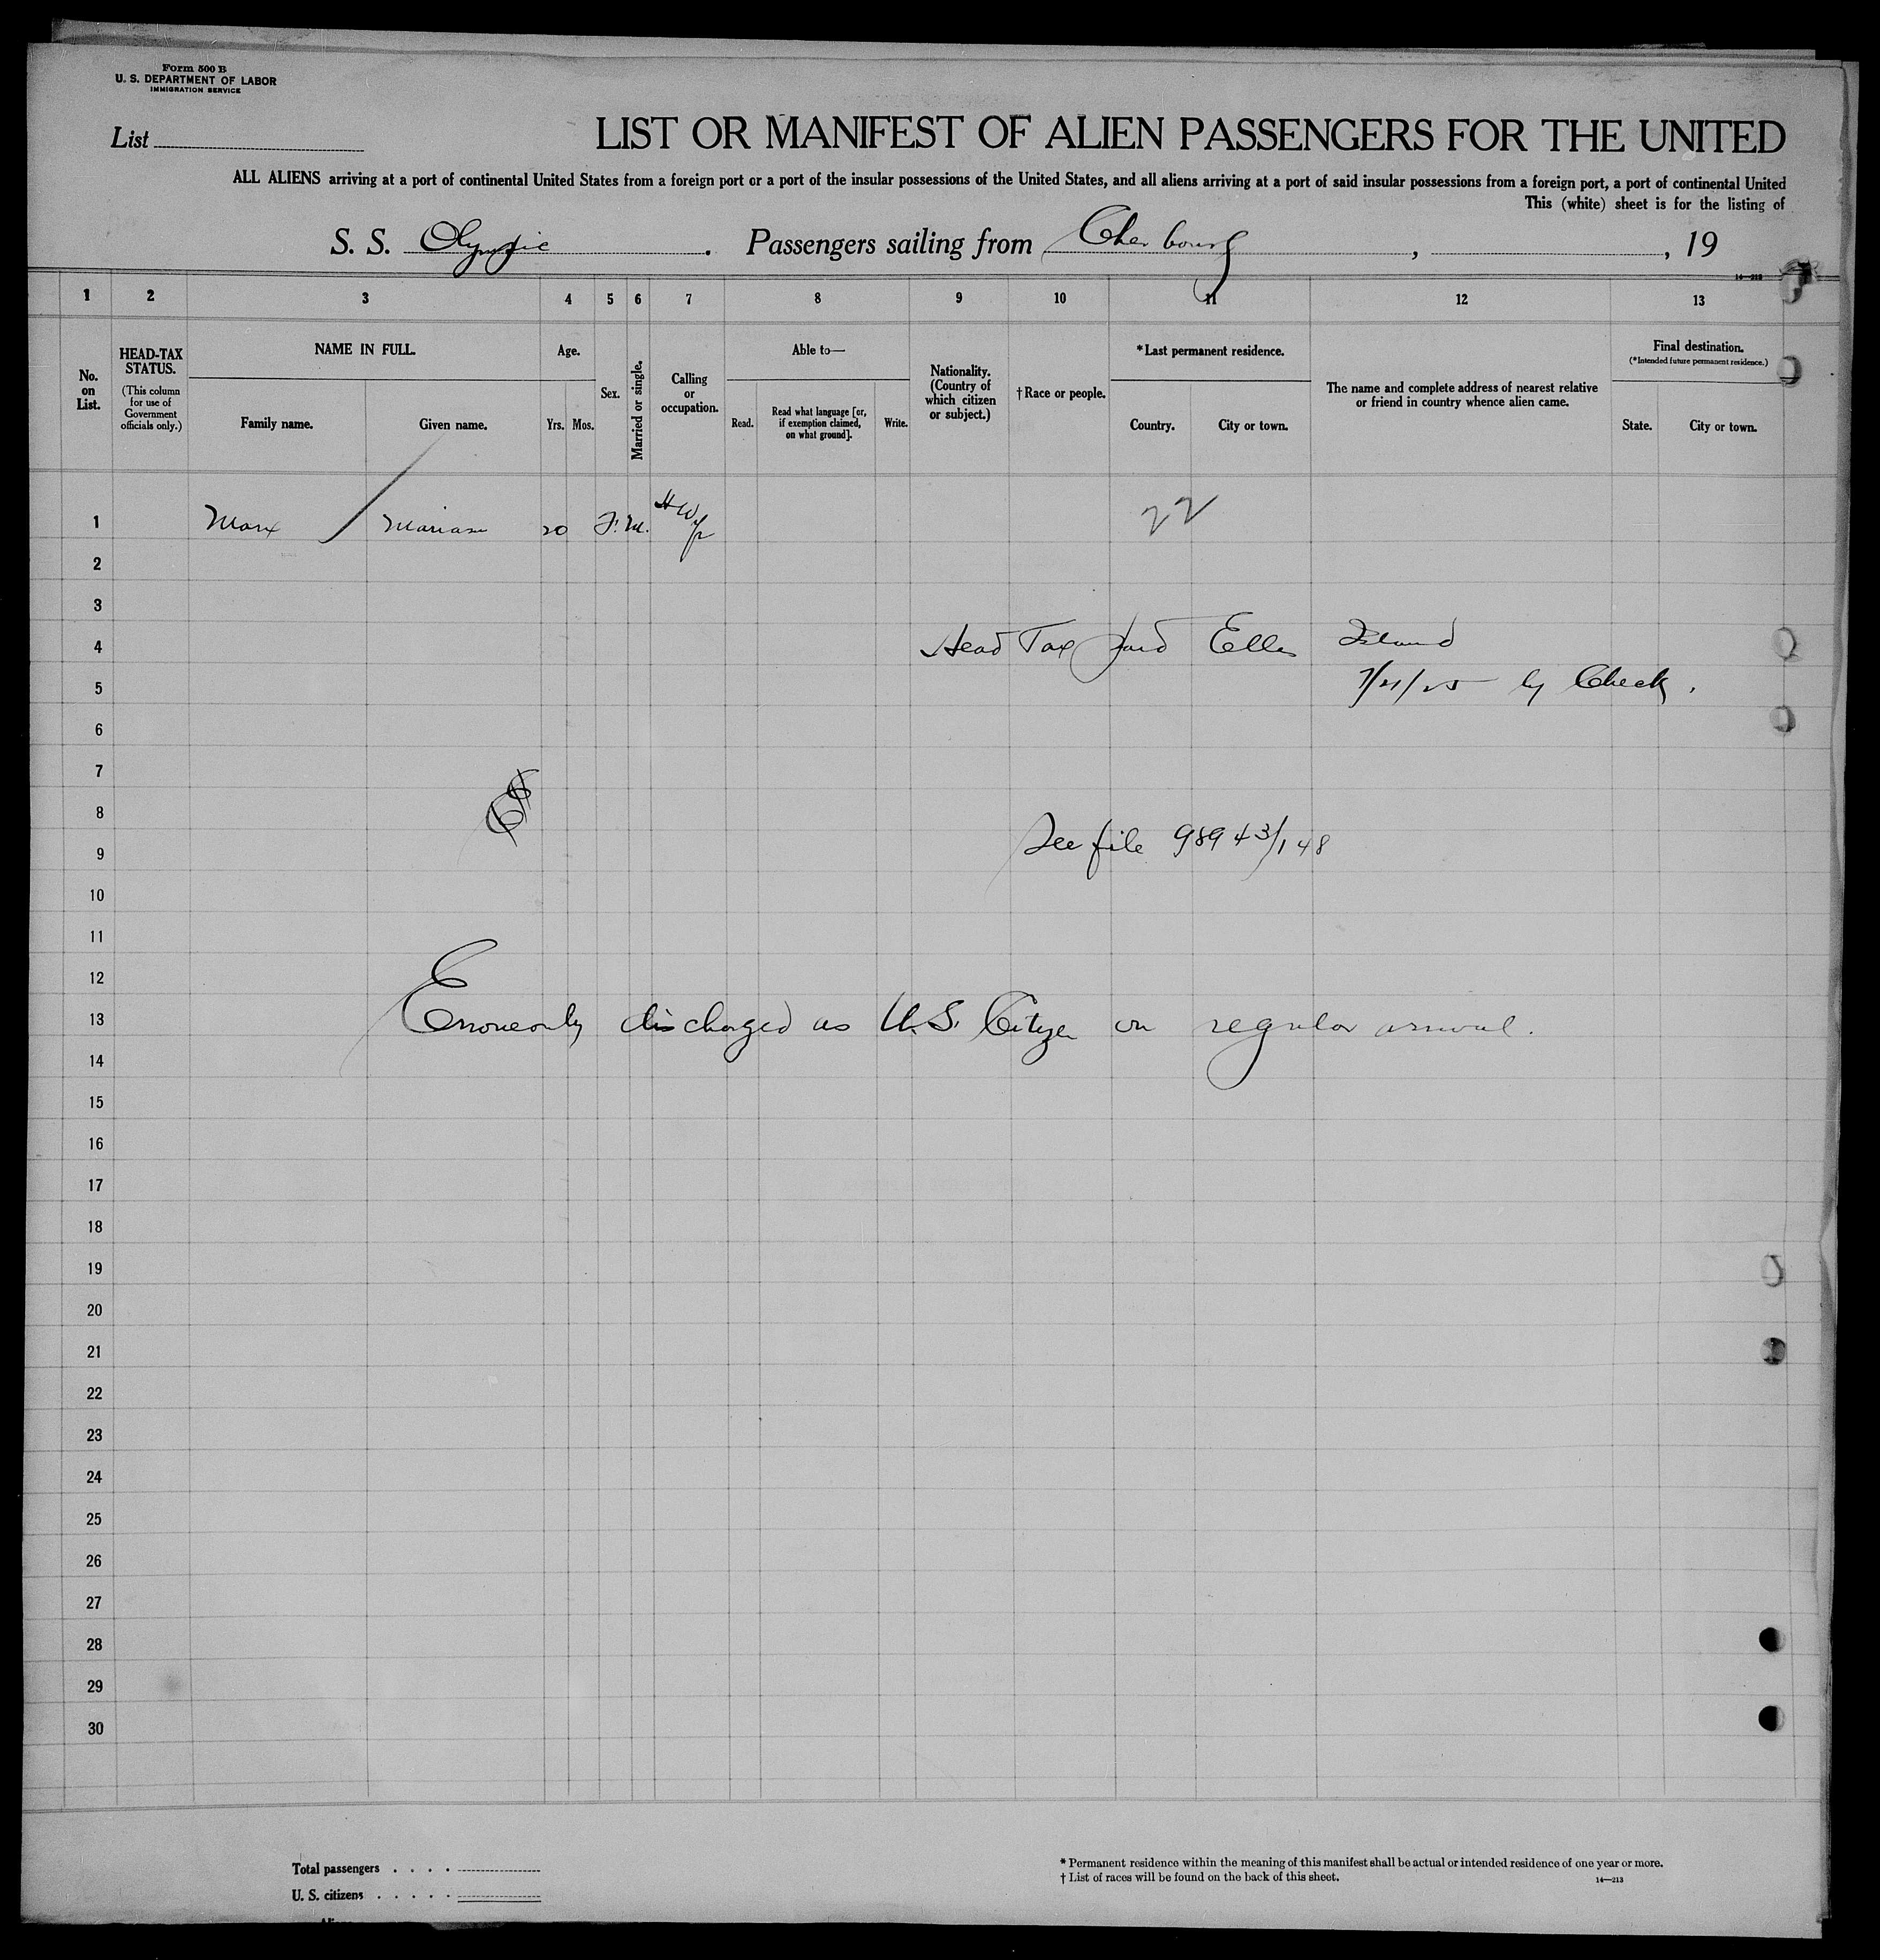 Form 500 B
U. S. DEPARTMENT OF LABOR
IMMIGRATION SERVICE
List
LIST OR MANIFEST OF ALIEN PASSENGERS FOR THE UNITED
ALL ALIENS arriving at a port of continental United States from a foreign port or a port of the insular possessions of the United States, and all aliens arriving at a port of said insular possessions from a foreign port, a port of continental United
This (white) sheet is for the listing of
S. S. Olympic . Passengers sailing from Cherbourg , , 19
14—213
1 2 3 4 5 6 7 8 9 10 11 12 13
No. on List.
HEAD-TAX STATUS.
(This column for use of Government officials only.)
NAME IN FULL.
Family name.
Given name.
Age.
Yrs. Mos.
Sex.
Married or single.
Calling or occupation.
Able to—
Read.
Read what language [or, if exemption claimed, on what ground].
Write.
Nationality. (Country of which citizen or subject.)
† Race or people.
* Last permanent residence.
Country.
City or town.
The name and complete address of nearest relative or friend in country whence alien came.
Final destination.
(* Intended future permanent residence.)
State.
City or town.
1 Marx Marian 20 F. M. 22
2
3
4 Head Tax paid Ellis Island
5 7/21/25 by Check.
6
7
8
9 See file 98943/148
10
11
12
13 Erroneously discharged as U.S. Citizen on regular arrival.
14
15
16
17
18
19
20
21
22
23
24
25
26
27
28
29
30
Total passengers . . . .
U. S. citizens . . . . .
* Permanent residence within the meaning of this manifest shall be actual or intended residence of one year or more.
† List of races will be found on the back of this sheet.
14—213